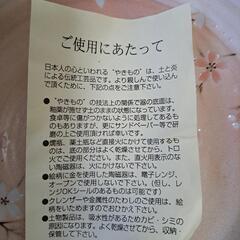 ご使用にあたって
日本人の心といわれる“やきもの”は、土と炎
による伝統工芸品です。より親しんで使い込ん
で頂くために、下記の点をご注意下さい。
●“やきもの”の技法上の関係で器の底面は、
釉薬が施せず土のままの状態になっています。
食卓等に傷がつかないように処理してあるも
のもありますが、更にサンドペーパー等で研
磨の上ご使用頂ければ幸いです。
●燗瓶、薬土瓶など直接火にかけて使用するも
のは、底の部分はよく乾燥させてから、トロ
火でご使用ください。また、直火用表示のな
い陶磁器は、火にかけないでください。
●絵柄に金を使用した陶磁器は、電子レンジ、
オーブンで使用しないで下さい。（但し、レ
ンジOKシールのあるものは可能です）
●クレンザーや金属性のたわしのご使用は、絵
柄をいためますのでおひかえ下さい。
●土物製品は、吸水性があるためカビ・シミの
原因になりますので、よく乾燥させてから、収納・
保管して下さい。